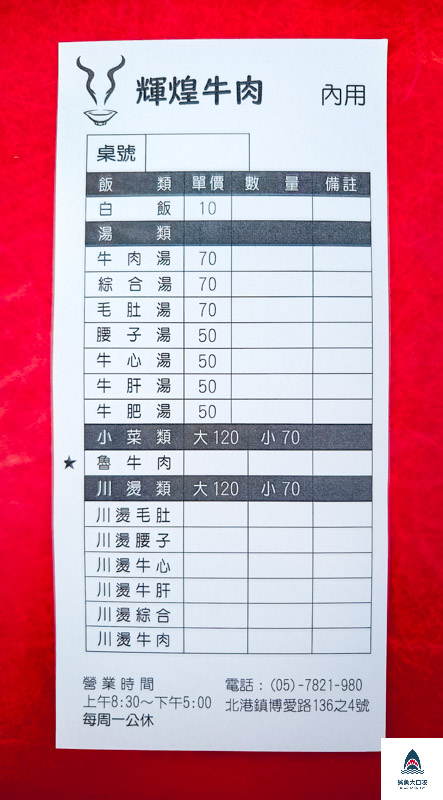 輝煌牛肉 內用
桌號
飯類 單價 數量 備註
白飯 10
湯類
牛肉湯 70
綜合湯 70
毛肚湯 70
腰子湯 50
牛心湯 50
牛肝湯 50
牛肥湯 50
小菜類 大120 小70
★ 魯牛肉
川燙類 大120 小70
川燙毛肚
川燙腰子
川燙牛心
川燙牛肝
川燙綜合
川燙牛肉
營業時間 電話：(05)-7821-980
上午8:30～下午5:00 北港鎮博愛路136之4號
每周一公休
鯊魚大口咬